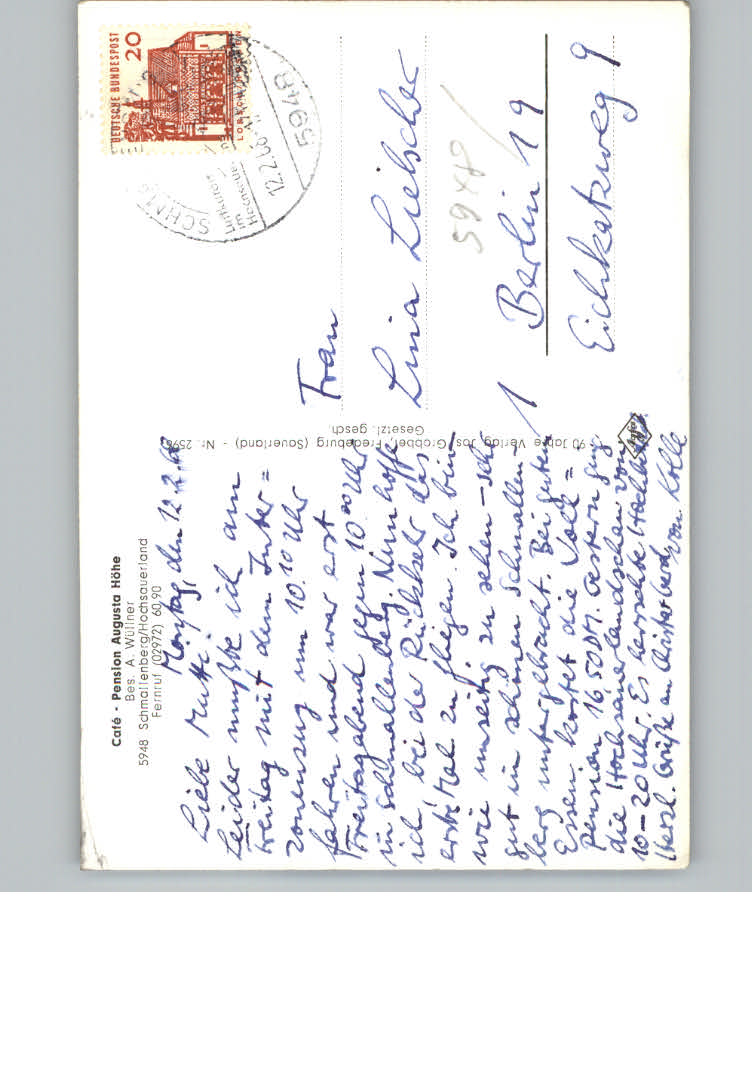 Café - Pension Augusta Höhe
Bes. A. Wüllner
5948 Schmallenberg/Hochsauerland
Fernruf (02972) 60,90
Montag, den 12.2.68
Liebe Mutti!
Leider mußte ich am
Freitag mit dem Inter=
zonenzug um 10.10 Uhr
fahren und war erst
Freitagabend gegen 10⁰⁰ Uhr
in Schmallenberg. Nun hoffe
ich bei der Rückkehr das
erste Mal zu fliegen. Ich bin -
wie umseitig zu sehen - sehr
gut in schönen Schmallen-
berg untergebracht. Bei gutem
Essen kostet die Voll=
pension 16,50 DM. Gestern ging
die Hochsauerlandschau von
10-20 Uhr. Es herrschte
Herzl. Grüße an
von
90 Jahre Verlag Jos. Grobbel, Fredeburg (Sauerland) - Nr. 2596
Gesetzl. gesch.
DEUTSCHE BUNDESPOST
20
LORSCH
5948
12.2.68
SCHM
Luftkurort
im
Hochsauerland
Frau
Lina Lielscher
5948
1 Berlin 19
Eichkatzweg 9